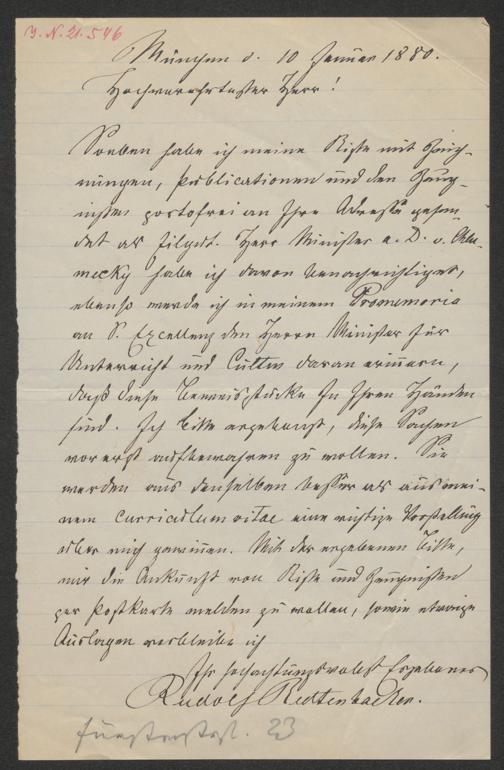 J. N. 21.546
München d. 10 Januar 1880.
Hochverehrtester Herr!
Soeben habe ich meine Kiste mit Zeich-
nungen, Publicationen und den Zeug-
nissen portofrei an Ihre Adresse gesen-
det als Eilgut. Herr Minister a. D. v. Chlu-
mecky habe ich davon benachrichtiget,
ebenso werde ich in meinem Promemoria
an S. Excellenz den Herrn Minister für
Unterricht und Cultus daran erinnern,
daß diese Beweisstücke in Ihren Händen
sind. Ich bitte ergebenst, diese Sachen
vorerst aufbewahren zu wollen. Sie
werden aus denselben besser als aus mei-
nem curriculum vitae eine richtige Vorstellung
über mich gewinnen. Mit der ergebenen Bitte,
mir die Ankunft von Kiste und Zeugnissen
per Postkarte melden zu wollen, sowie etwaige
Auslagen verbleibe ich
Ihr hochachtungsvollst Ergebener
Rudolf Redtenbacher.
23